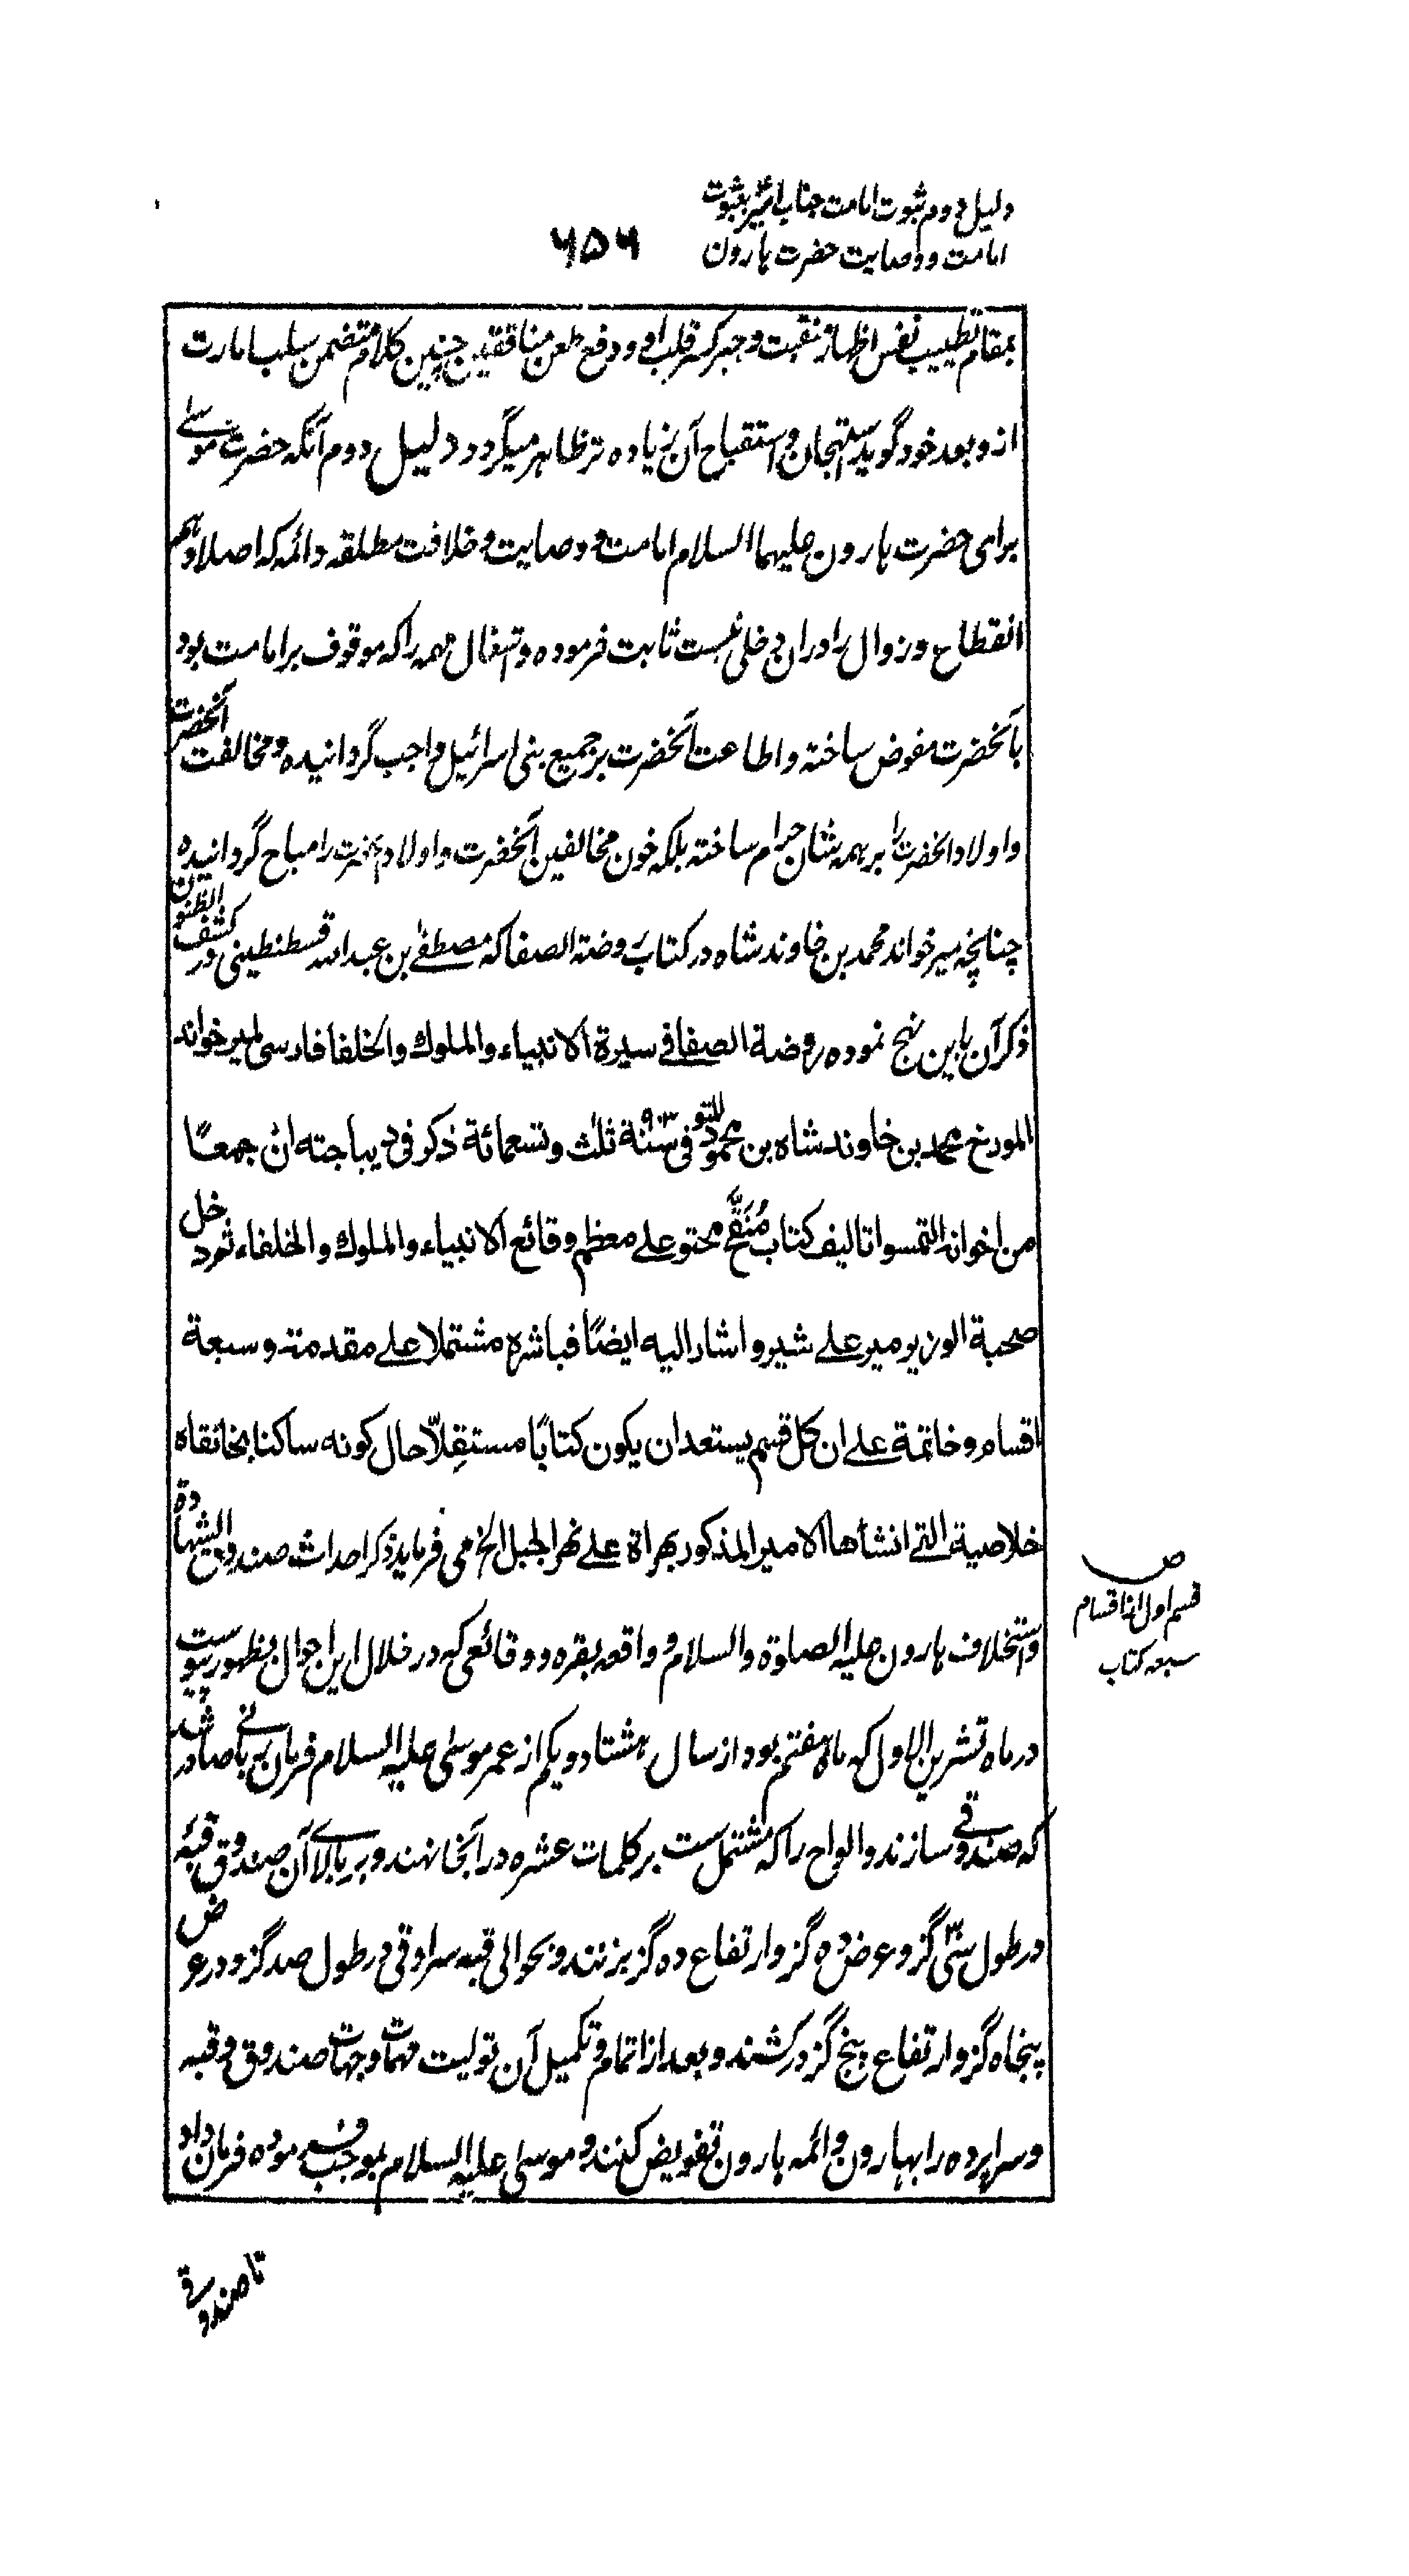 دلیل دوم ثبوت امامت جناب امیر بثبوت
امامت و وصایت حضرت هارون
۶۵۶
بمقام تطییب نفس اظهار منقبت و جبر کسر قلب او و دفع طعن منافقین چنین کلام متضمن سلب امارت
از و بعد خود گوید استهجان و استقباح آن زیاده تر ظاهر میگردد دلیل دوم آنکه حضرت موسی
برای حضرت هارون علیهما السلام امامت و وصایت و خلافت مطلقه دائمه که اصلا وهم
انقطاع و زوال را دران دخلی نیست ثابت فرموده و اشغال مهمه را که موقوف بر امامت بود
بآنحضرت مفوض ساخته و اطاعت آنحضرت بر جمیع بنی اسرائیل واجب گردانیده و مخالفت آنحضرت
و اولاد آنحضرت را بر همه شان حرام ساخته بلکه خون مخالفین آنحضرت و اولاد آنحضرت را مباح گردانیده
چنانچه میر خواند محمد بن خاوند شاه در کتاب روضة الصفا که مصطفی بن عبد الله قسطنطینی در کشف الظنون
ذکر آن باین نهج نموده روضة الصفا فی سیرة الانبیاء والملوك والخلفا فارسی لمیر خواند
المورخ محمد بن خاوند شاه بن محمود المتوفی سنة ۹۰۳ ثلث وتسعمائة ذكر فی دیباجته ان جمعًا
من اخوانه التمسوا تالیف كتاب مُنَقَّح محتو علی معظم وقائع الانبیاء والملوك والخلفاء ثم دخل
صحبة الوزیر میر علی شیر واشار الیه ایضًا فباشره مشتملا علی مقدمة وسبعة
اقسام وخاتمة علی ان كل قسم یستعد ان یكون كتابًا مستقلّا حال كونه ساكنا بخانقاه
خلاصیة التی انشأها الامیر المذكور بهراة علی نهر الجبل الخ می فرماید ذکر احداث صندوق الشهادة
و استخلاف هارون علیه الصلوة والسلام و واقعه بقره و وقائعی که در خلال این احوال بظهور پیوست
در ماه تشرین الاول که ماه هفتم بود از سال هشتاد و یکم از عمر موسی علیه السلام فرمان ربانی صادر شد
که صندوقی سازند و الواح را که مشتمل ست بر کلمات عشره در آنجا نهند و بر بالای آن صندوق قبه
در طول سی گز و عرض ده گز و ارتفاع ده گز بزنند و بحوالی قبه سراوقی در طول صد گز و در عرض
پنجاه گز و ارتفاع پنج گز در کشند و بعد از اتمام و تکمیل آن تولیت مهمات و جهات صندوق و قبه
و سراپرده را بهارون و ائمه هارون تفویض کنند و موسی علیه السلام بموجب فرموده فرمان داد
ص
قسم اول از اقسام
سبعه کتاب
تا صندوقی